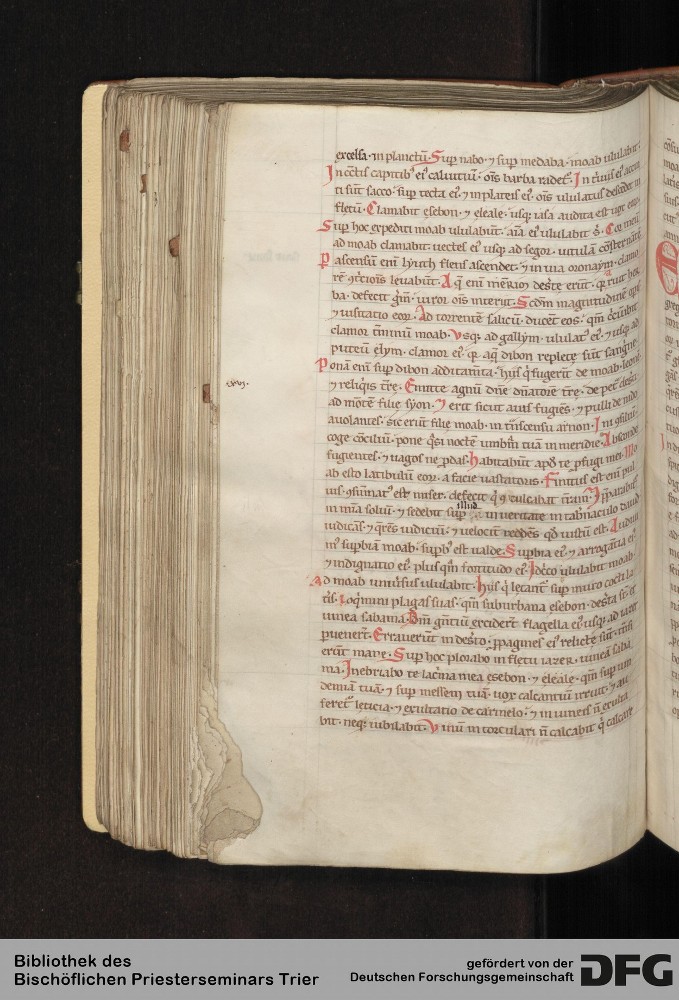 excelsa · in planctū · Sup nabo · ⁊ sup medaba · moab ululabit ·
In cūctis capitib⁹ ei⁹ caluitiū · oīs barba radet᷑ · In t̓uiis ei⁹ accīc
ti sūt sacco · sup tecta ei⁹ ⁊ in plateis ei⁹ · oīs ululatus descēdit in
fletū · Clamabit esebon · ⁊ eleale · usq; iasa audita est uox eoꝝ ·
Sup hoc expediti moab ululabūt · aīa ei⁹ ululabit s̓ · Cor meū
ad moab clamabit · uectes ei⁹ usq; ad segor · uitulā cōsternātē
P ascensū enī luith flens ascendet · ⁊ in uia oronaym · clamo
rē ɔt̓cōis leuabūt · Aq̄ enī nēmrī deserte erūt · qr̄ aruit her
ba · defecit g̓mē · uiror oīs interiit · Scdm magnitudinē opis
⁊ uisitatio eoꝝ · Ad torrentē salicū · ducēt eos · qm̄ circuiuit
clamor t̓minū moab · Usq; ad gallym · ululat⁹ ei⁹ · ⁊ usq; ad
puteū elym · clamor ei⁹ · qr̄ aq̄ dibon replete sūt sanguīe
Ponā enī sup dibon additamīta · hiis q̓ fugerūt de moab · leonē
·xvi·
⁊ reliq̓is t̓re · Emitte agnū dn̄e dn̄atorē t̓re · de pet̓ deserti
ad mōtē filie syon · ⁊ erit sicut auis fugiēs · ⁊ pulli de nido
auolantes · sic erūt filie moab · in trāscensu arnon · Ini ɔsiliū ·
coge cōciliū · pone q̓si noctē umbrā tuā in meridie · Absconde
fugientes · ⁊ uagos ne ꝓdas · Habitabūt apd̄ te ꝓfugi mei · Mo
ab esto latibulū eoꝝ · a facie uastatoris · Finitus est enī pul
uis · ɔsūmat⁹ est miser · defecit q̓ ɔculcabat t̓ram · Et p̄parabit᷑
in mīa soliū · ⁊ sedebit sup illud in ueritate in tab̓naculo dauid
iudicās · ⁊ q̄rēs iudiciū · ⁊ uelocit̓ reddēs qd̄ iustū est · Audiui
m⁹ supbiā moab · supb⁹ est ualde · Supbia ei⁹ · ⁊ arrogātia ei⁹
⁊ indignatio ei⁹ · plus q̄m fortitudo ei⁹ · Idc̄co ululabit moab
Ad moab uniu̓sus ululabit · Hiis q̓ letant᷑ sup muro cocti la
t̓is · Loq̓mini plagas suas · qm̄ suburbana esebon · deserta sūt et
uinea sabama · Dn̄i gētiū excidert̄ flagella ei⁹ usq; ad iazer
puenert̄ · Errauerūt in deserto · ꝓpagines ei⁹ relicte sūt · t̓nsi
erūt mare · Sup hoc plorabo in fletu iazer · uineā saba
ma · Inebriabo te lac̓ma mea esebon · ⁊ eleale · qm̄ sup uin
demiā tuā · ⁊ sup messem tuā · uox calcantiū irruit · ⁊ au
feret᷑ leticia · ⁊ exultatio de carmelo · ⁊ in uineis n̄ exulta
bit · neq; iubilabit · Uinū in torculari n̄ calcabit q̓ calcare
Bibliothek des
Bischöflichen Priesterseminars Trier
gefördert von der
Deutschen Forschungsgemeinschaft
DFG